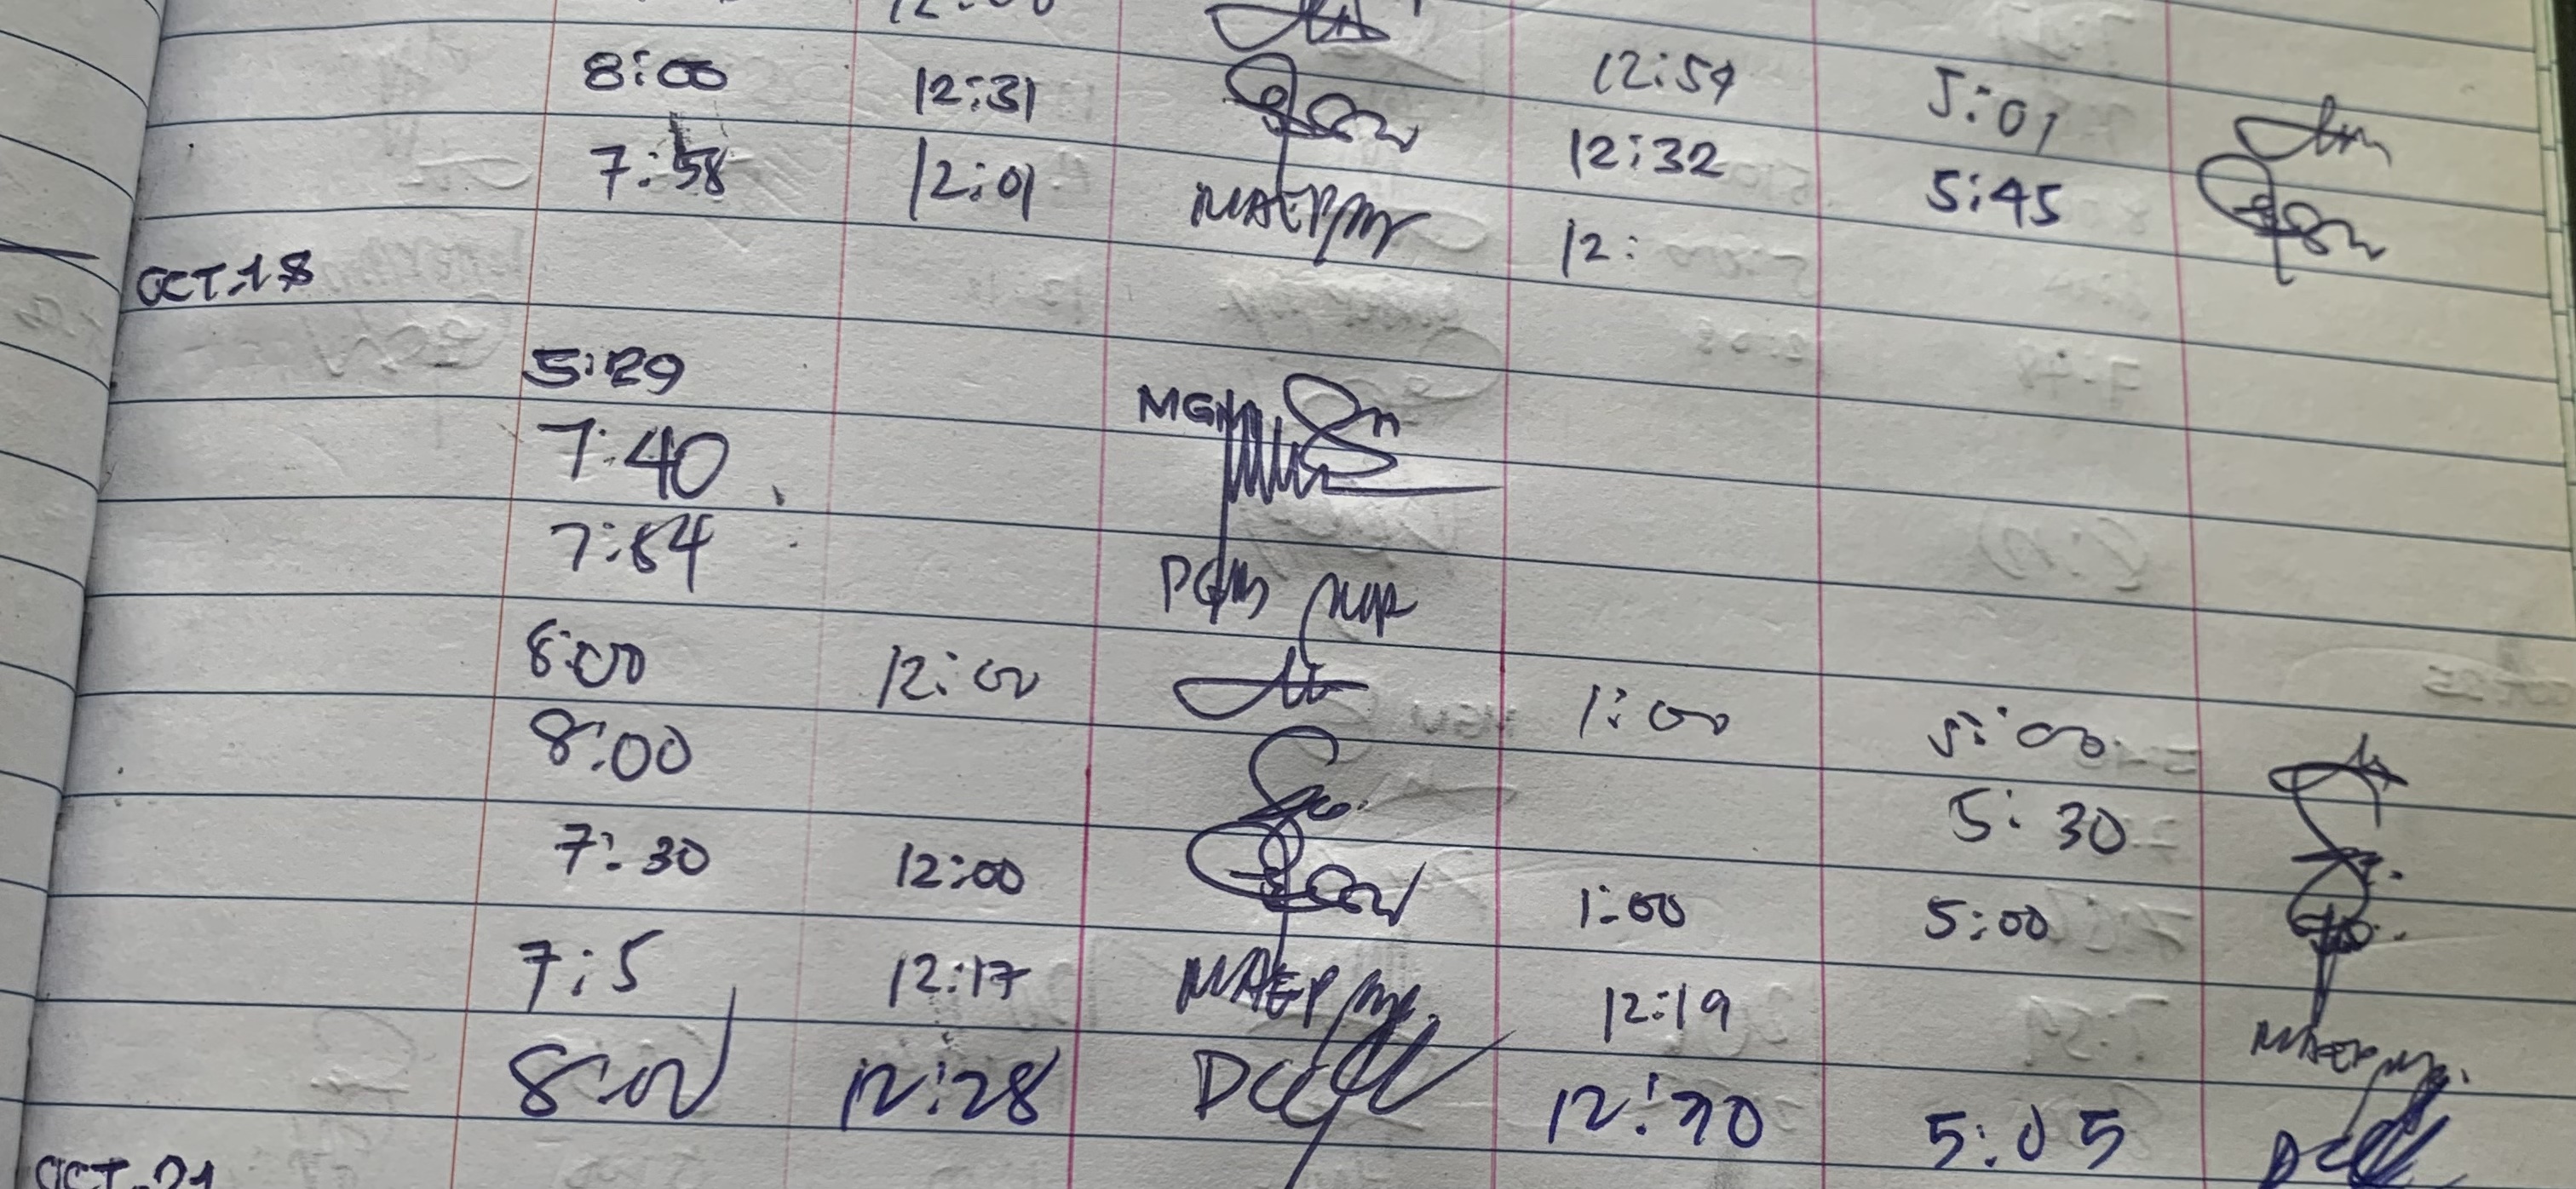 8:00 12:31 12:59 5:01
7:58 12:01 MAEP 12:32 5:45
OCT.18 12:
5:29 MGM
7:40
7:54 PGM
8:00 12:00 1:00 5:00
8:00 5:30
7:30 12:00 1:00 5:00
7:5 12:17 MAEP 12:19 MAEP
8:00 12:28 12:30 5:05
OCT.21